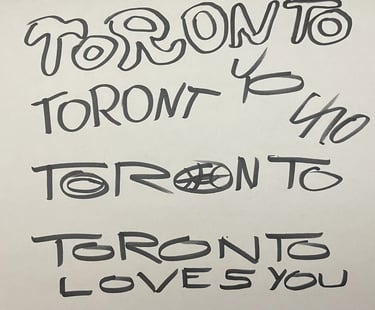 TORONTO
TORONT
YO
TORONTO
TORONTO
LOVES YOU